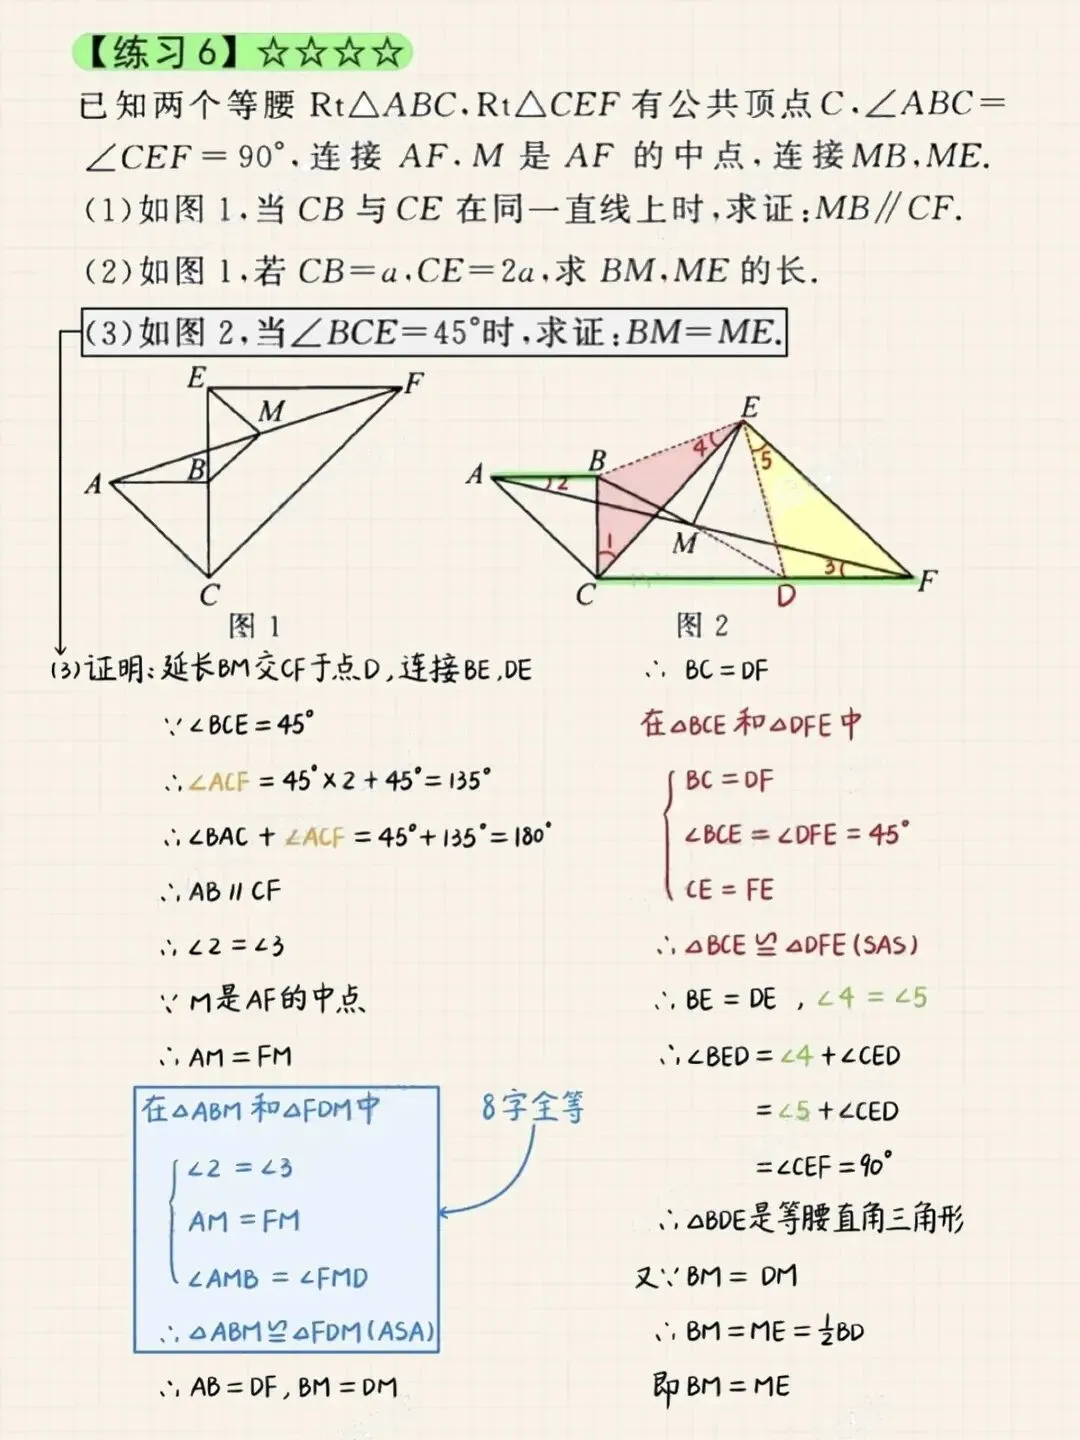 【练习6】☆☆☆☆
已知两个等腰 Rt△ABC,Rt△CEF 有公共顶点C,∠ABC=
∠CEF=90°,连接 AF,M 是 AF 的中点,连接MB,ME.
(1)如图 1,当 CB 与 CE 在同一直线上时,求证:MB∥CF.
(2)如图 1,若 CB=a,CE=2a,求 BM,ME 的长.
(3)如图 2,当∠BCE=45°时,求证:BM=ME.
E
F
M
A
B
C
图 1
E
4
5
A
B
2
1
M
3
C
D
F
图 2
(3)证明:延长BM交CF于点D,连接BE,DE
∵∠BCE=45°
∴∠ACF=45°×2+45°=135°
∴∠BAC+∠ACF=45°+135°=180°
∴AB∥CF
∴∠2=∠3
∵M是AF的中点
∴AM=FM
在△ABM和△FDM中
∠2=∠3
AM=FM
∠AMB=∠FMD
∴△ABM≌△FDM(ASA)
8字全等
∴AB=DF,BM=DM
∴BC=DF
在△BCE和△DFE中
BC=DF
∠BCE=∠DFE=45°
CE=FE
∴△BCE≌△DFE(SAS)
∴BE=DE,∠4=∠5
∴∠BED=∠4+∠CED
=∠5+∠CED
=∠CEF=90°
∴△BDE是等腰直角三角形
又∵BM=DM
∴BM=ME=½BD
即BM=ME